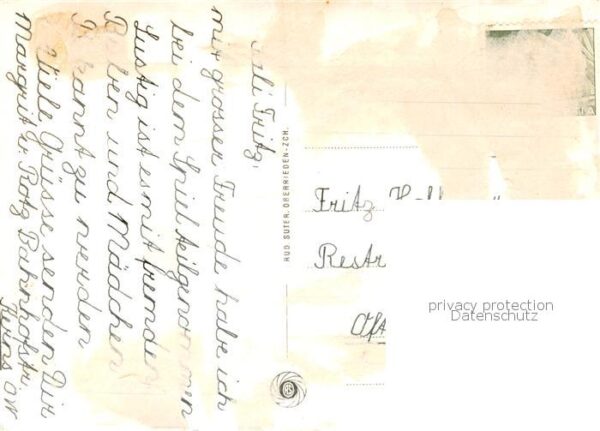 Sali Fritz,
mit grosser Freude habe ich
bei dem Spiel teilgenommen
Lustig ist es mit fremden
und Mädchen
zu werden
Viele Grüsse senden Dir
Margrit u. Rotz Bahnhofstr.
Kerns OW
RUD. SUTER, OBERRIEDEN-ZCH.
Fritz
Restr
privacy protection
Datenschutz